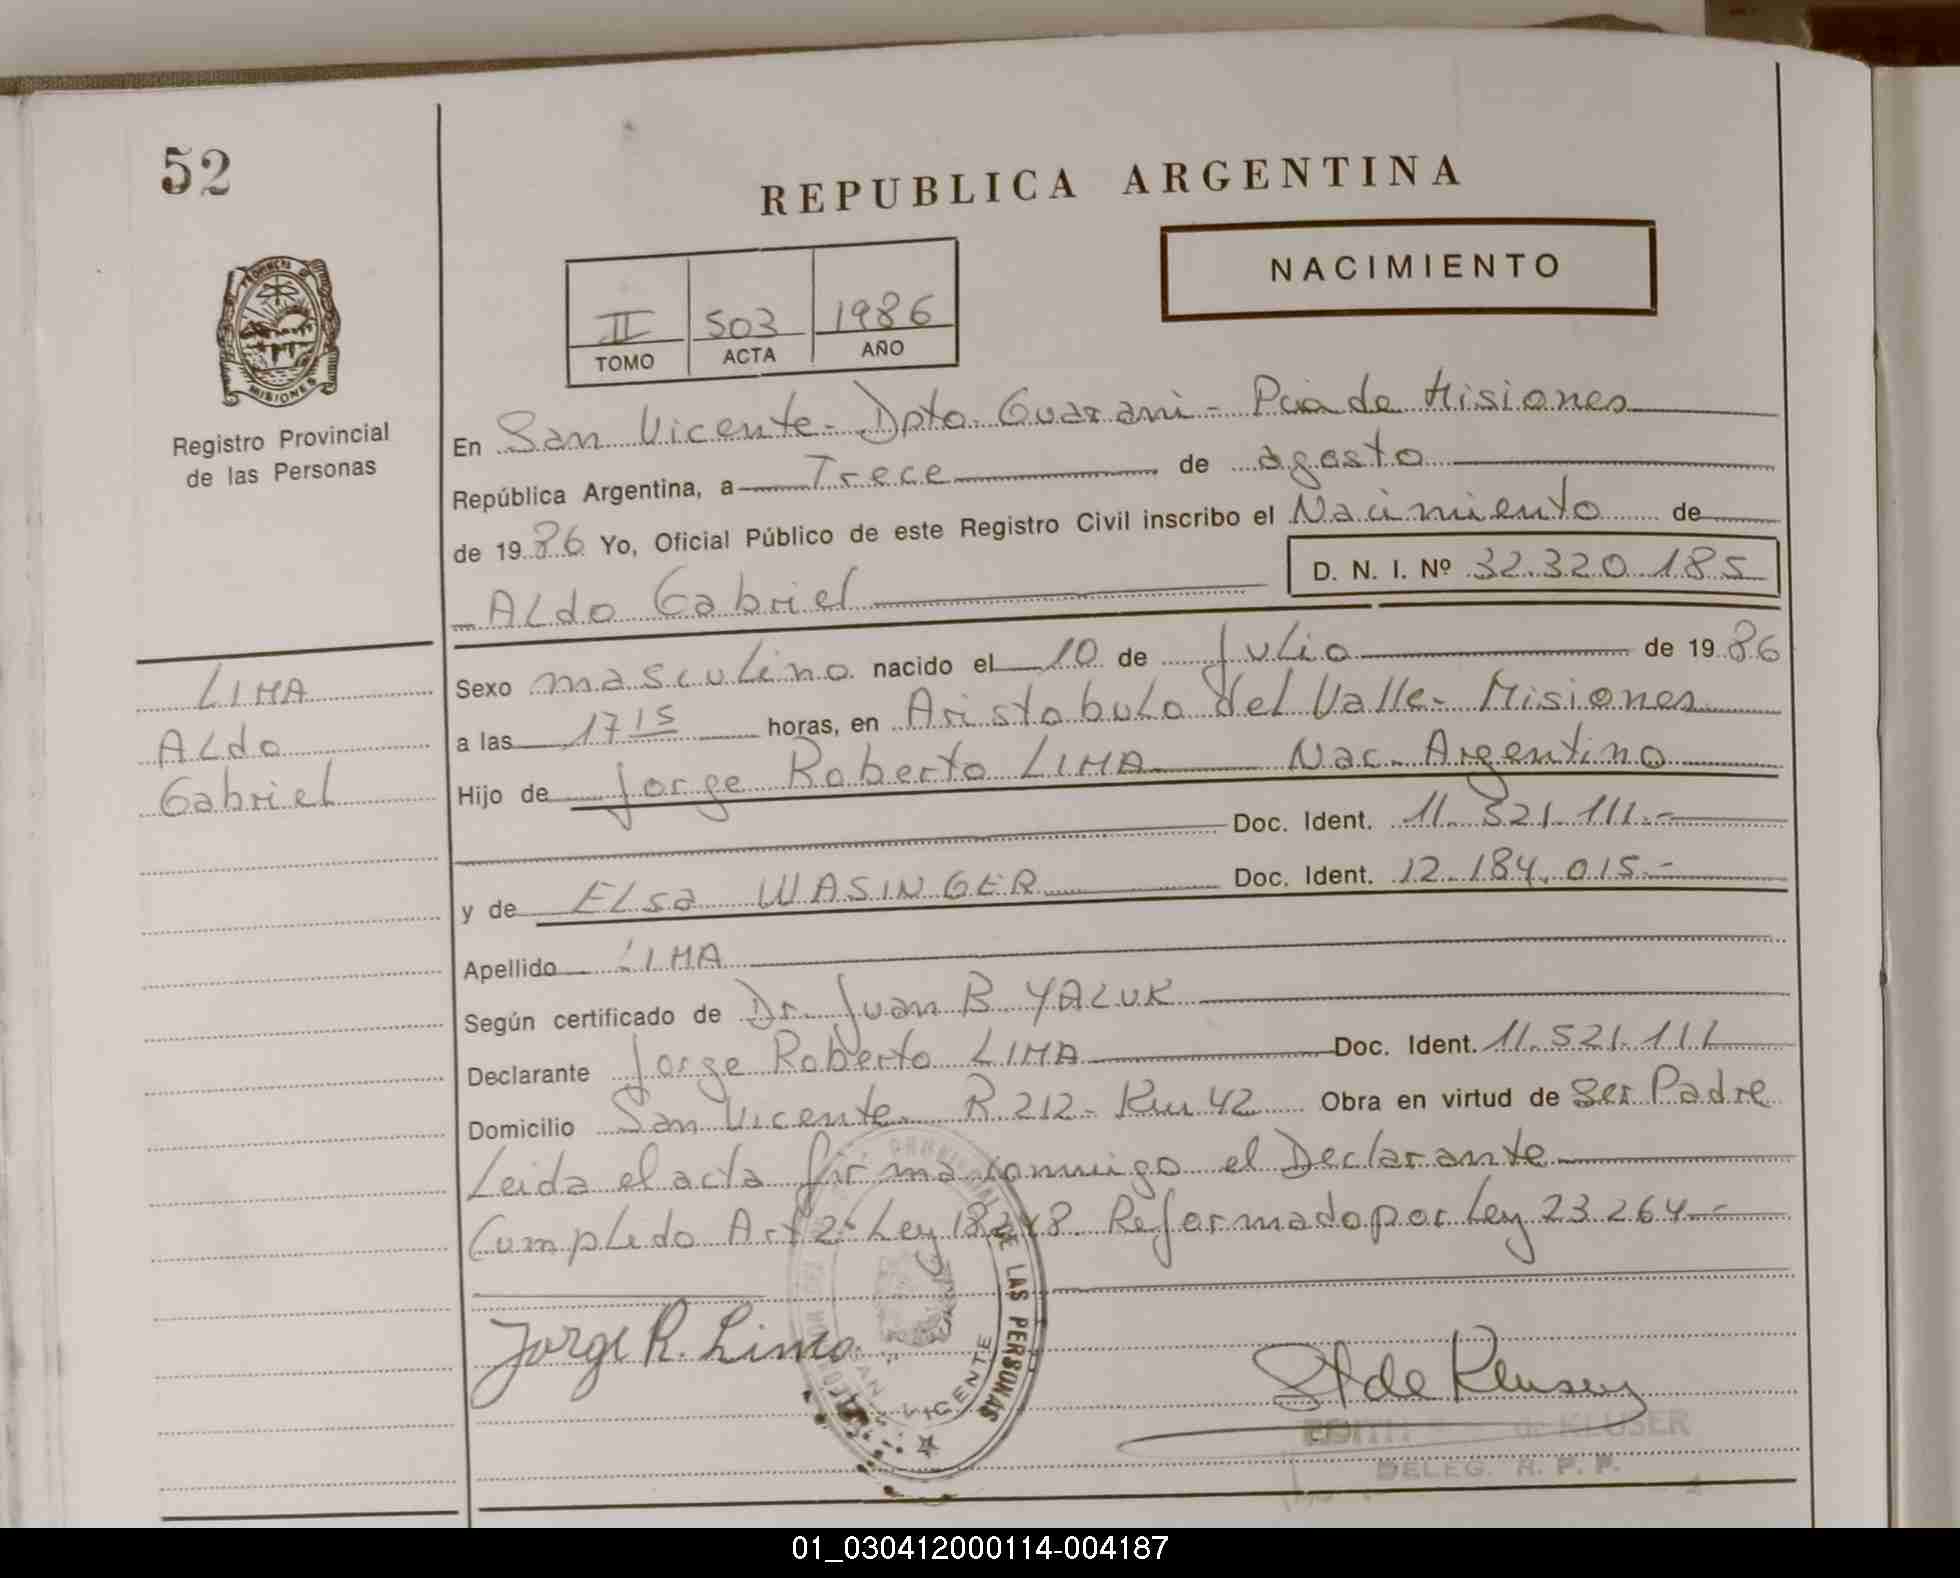 52
REPUBLICA ARGENTINA
NACIMIENTO
II 503 1986
TOMO ACTA AÑO
PROVINCIA DE
MISIONES
Registro Provincial
de las Personas
En San Vicente - Dpto. Guarani - Pcia de Misiones
República Argentina, a Trece de agosto
de 1986 Yo, Oficial Público de este Registro Civil inscribo el Nacimiento de
D. N. I. Nº 32.320.185
Aldo Gabriel
LIMA
Aldo
Gabriel
Sexo masculino nacido el 10 de Julio de 1986
a las 17 15 horas, en Aristobulo del Valle - Misiones
Hijo de Jorge Roberto LIMA Nac. Argentino
Doc. Ident. 11.521.111.-
y de Elsa WASINGER Doc. Ident. 12.184.015.-
Apellido LIMA
Según certificado de Dr. Juan B YALUK
Declarante Jorge Roberto LIMA Doc. Ident. 11.521.111
Domicilio San Vicente - R 212 - Km 42 Obra en virtud de Ser Padre
Leida el acta firma conmigo el Declarante
Cumplido Art 2º Ley 18248 Reformado por Ley 23.264.-
Jorge R. Lima
DE LAS PERSONAS
SAN VICENTE
EDITH de KLUSER
DELEG. R. P. P.
01_030412000114-004187